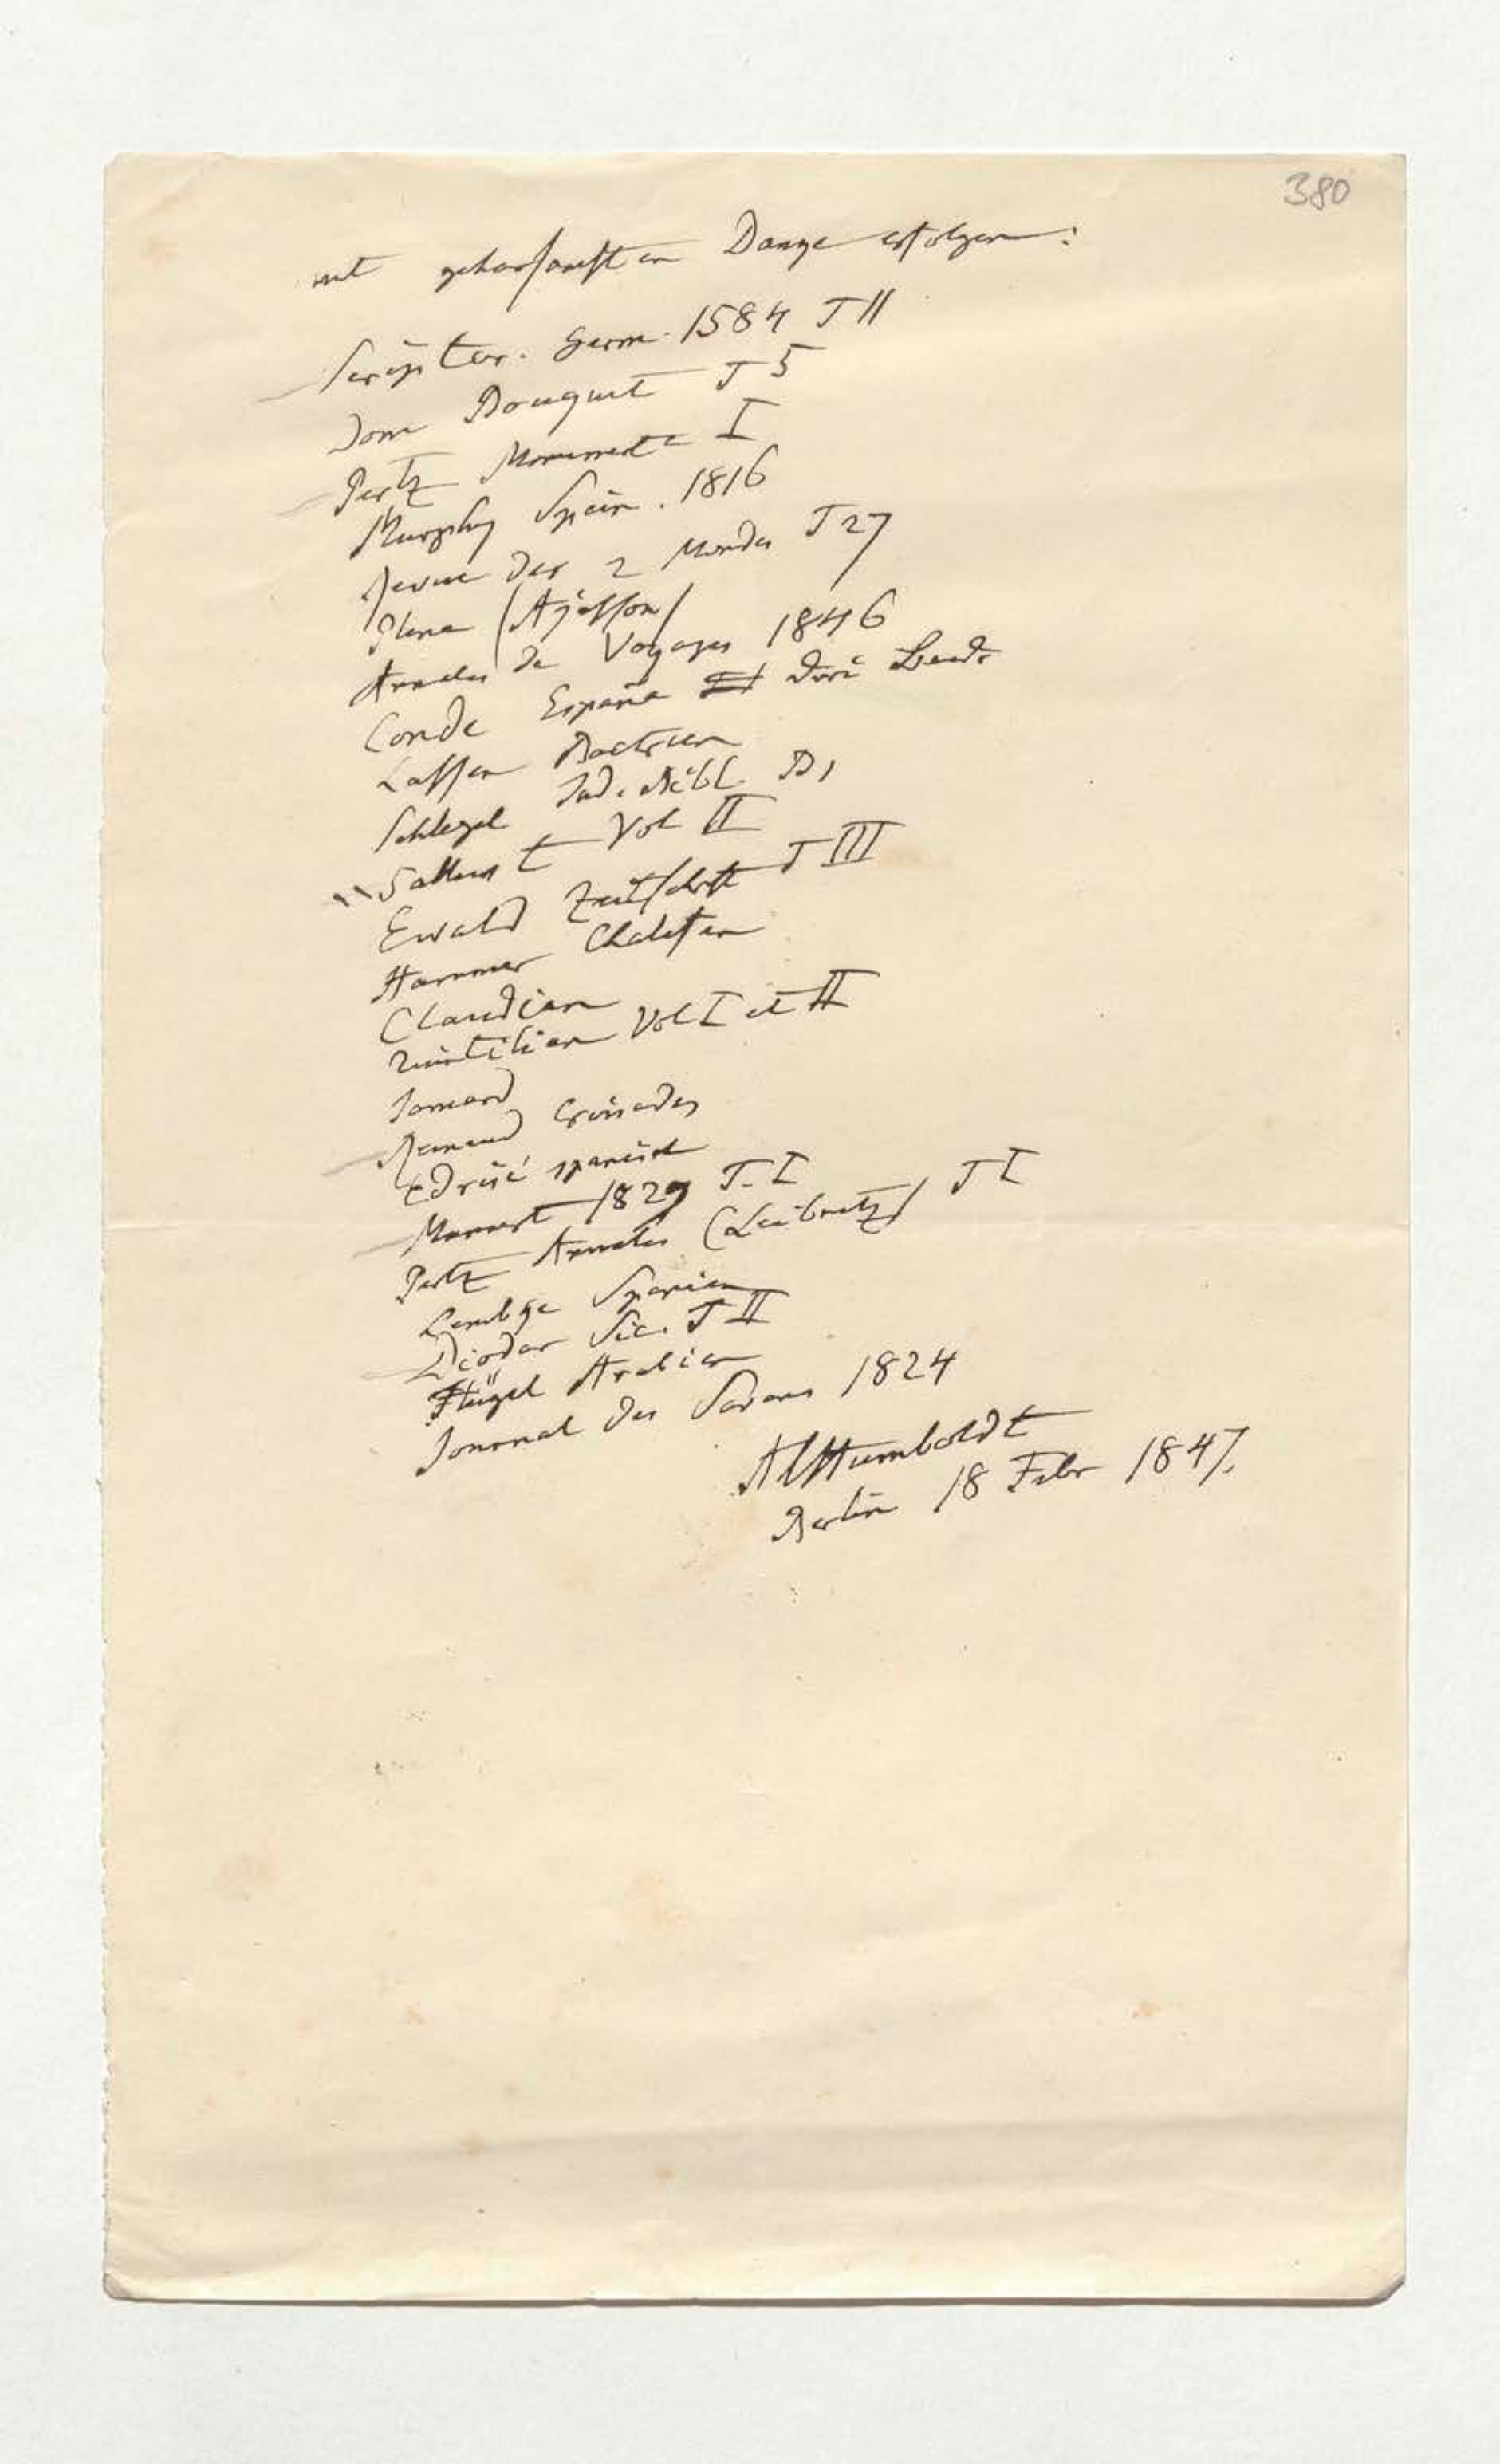 380
mit gehorsamsten Dange erfolgen:
Scriptor. Germ. 1584 T II
Dom Bouquet T 5
Pertz Monumenta I
Murphy Spain. 1816
Revue des 2 Mondes T 27
Pline (Ajasson)
Annales de Voyages 1846
Conde España drei Bände
Lassen Bactrien
Schlegel Ind. Bibl. B 1
Sallust Vol II
Ewald Zeitschrift T III
Hammer Chalifen
Claudian
Quintilian Vol I et II
Jomard
Reinaud Croisades
Edrisi spanisch
Mannert 1829 T. I
Pertz Annales (Leibnitz) T I
Lembke Spanien
Diodor Sic. T II
Flügel Arabien
Journal des Savans 1824
AlHumboldt
Berlin 18 Febr 1847.